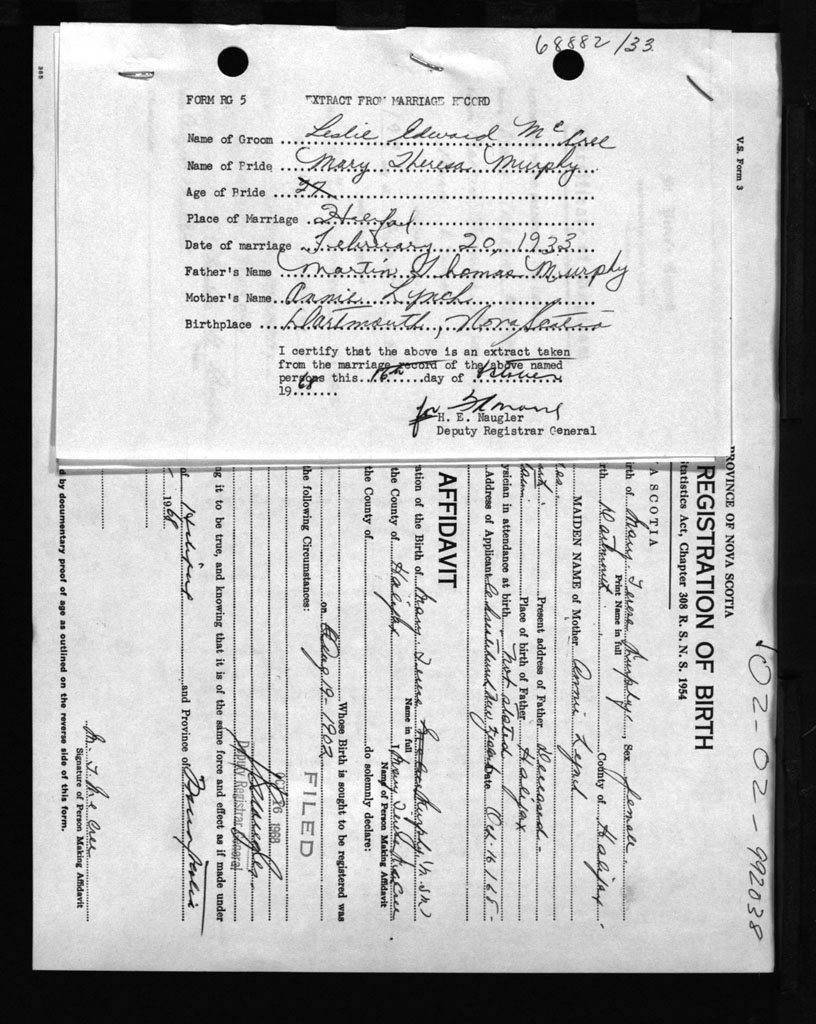 68882/33
FORM RG 5 EXTRACT FROM MARRIAGE RECORD
Name of Groom Leslie Edward McCree
Name of Pride Mary Theresa Murphy
Age of Bride 27
Place of Marriage Halifax
Date of marriage February 20, 1933
Father's Name Martin Thomas Murphy
Mother's Name Annie Lynch
Birthplace Dartmouth, Nova Scotia
I certify that the above is an extract taken
from the marriage record of the above named
persons this 16th day of
1968
for
H. E. Naugler
Deputy Registrar General
V.S. Form 3
102-02-992038
ROVINCE OF NOVA SCOTIA
REGISTRATION OF BIRTH
tatistics Act, Chapter 308 R. S. N. S. 1954
A SCOTIA
rth of Mary Teresa Murphy, Sex female
Print Name in full
rth Dartmouth County of Halifax
MAIDEN NAME of Mother Annie Lynch
Present address of Father Deceased
Place of birth of Father Halifax
ysician in attendance at birth Not stated
Address of Applicant Date Oct. 16/68
AFFIDAVIT
ation of the Birth of Mary Teresa Murphy
Name in full
the County of Halifax I Mary
Name of Person Making Affidavit
the County of do solemnly declare:
Whose Birth is sought to be registered was
on Aug 19-1902
the following Circumstances:
FILED
OCT 26 1968
Deputy Registrar General
ng it to be true, and knowing that it is of the same force and effect as if made under
of and Province of Nova Scotia
1968
Signature of Person Making Affidavit
d by documentary proof of age as outlined on the reverse side of this form.